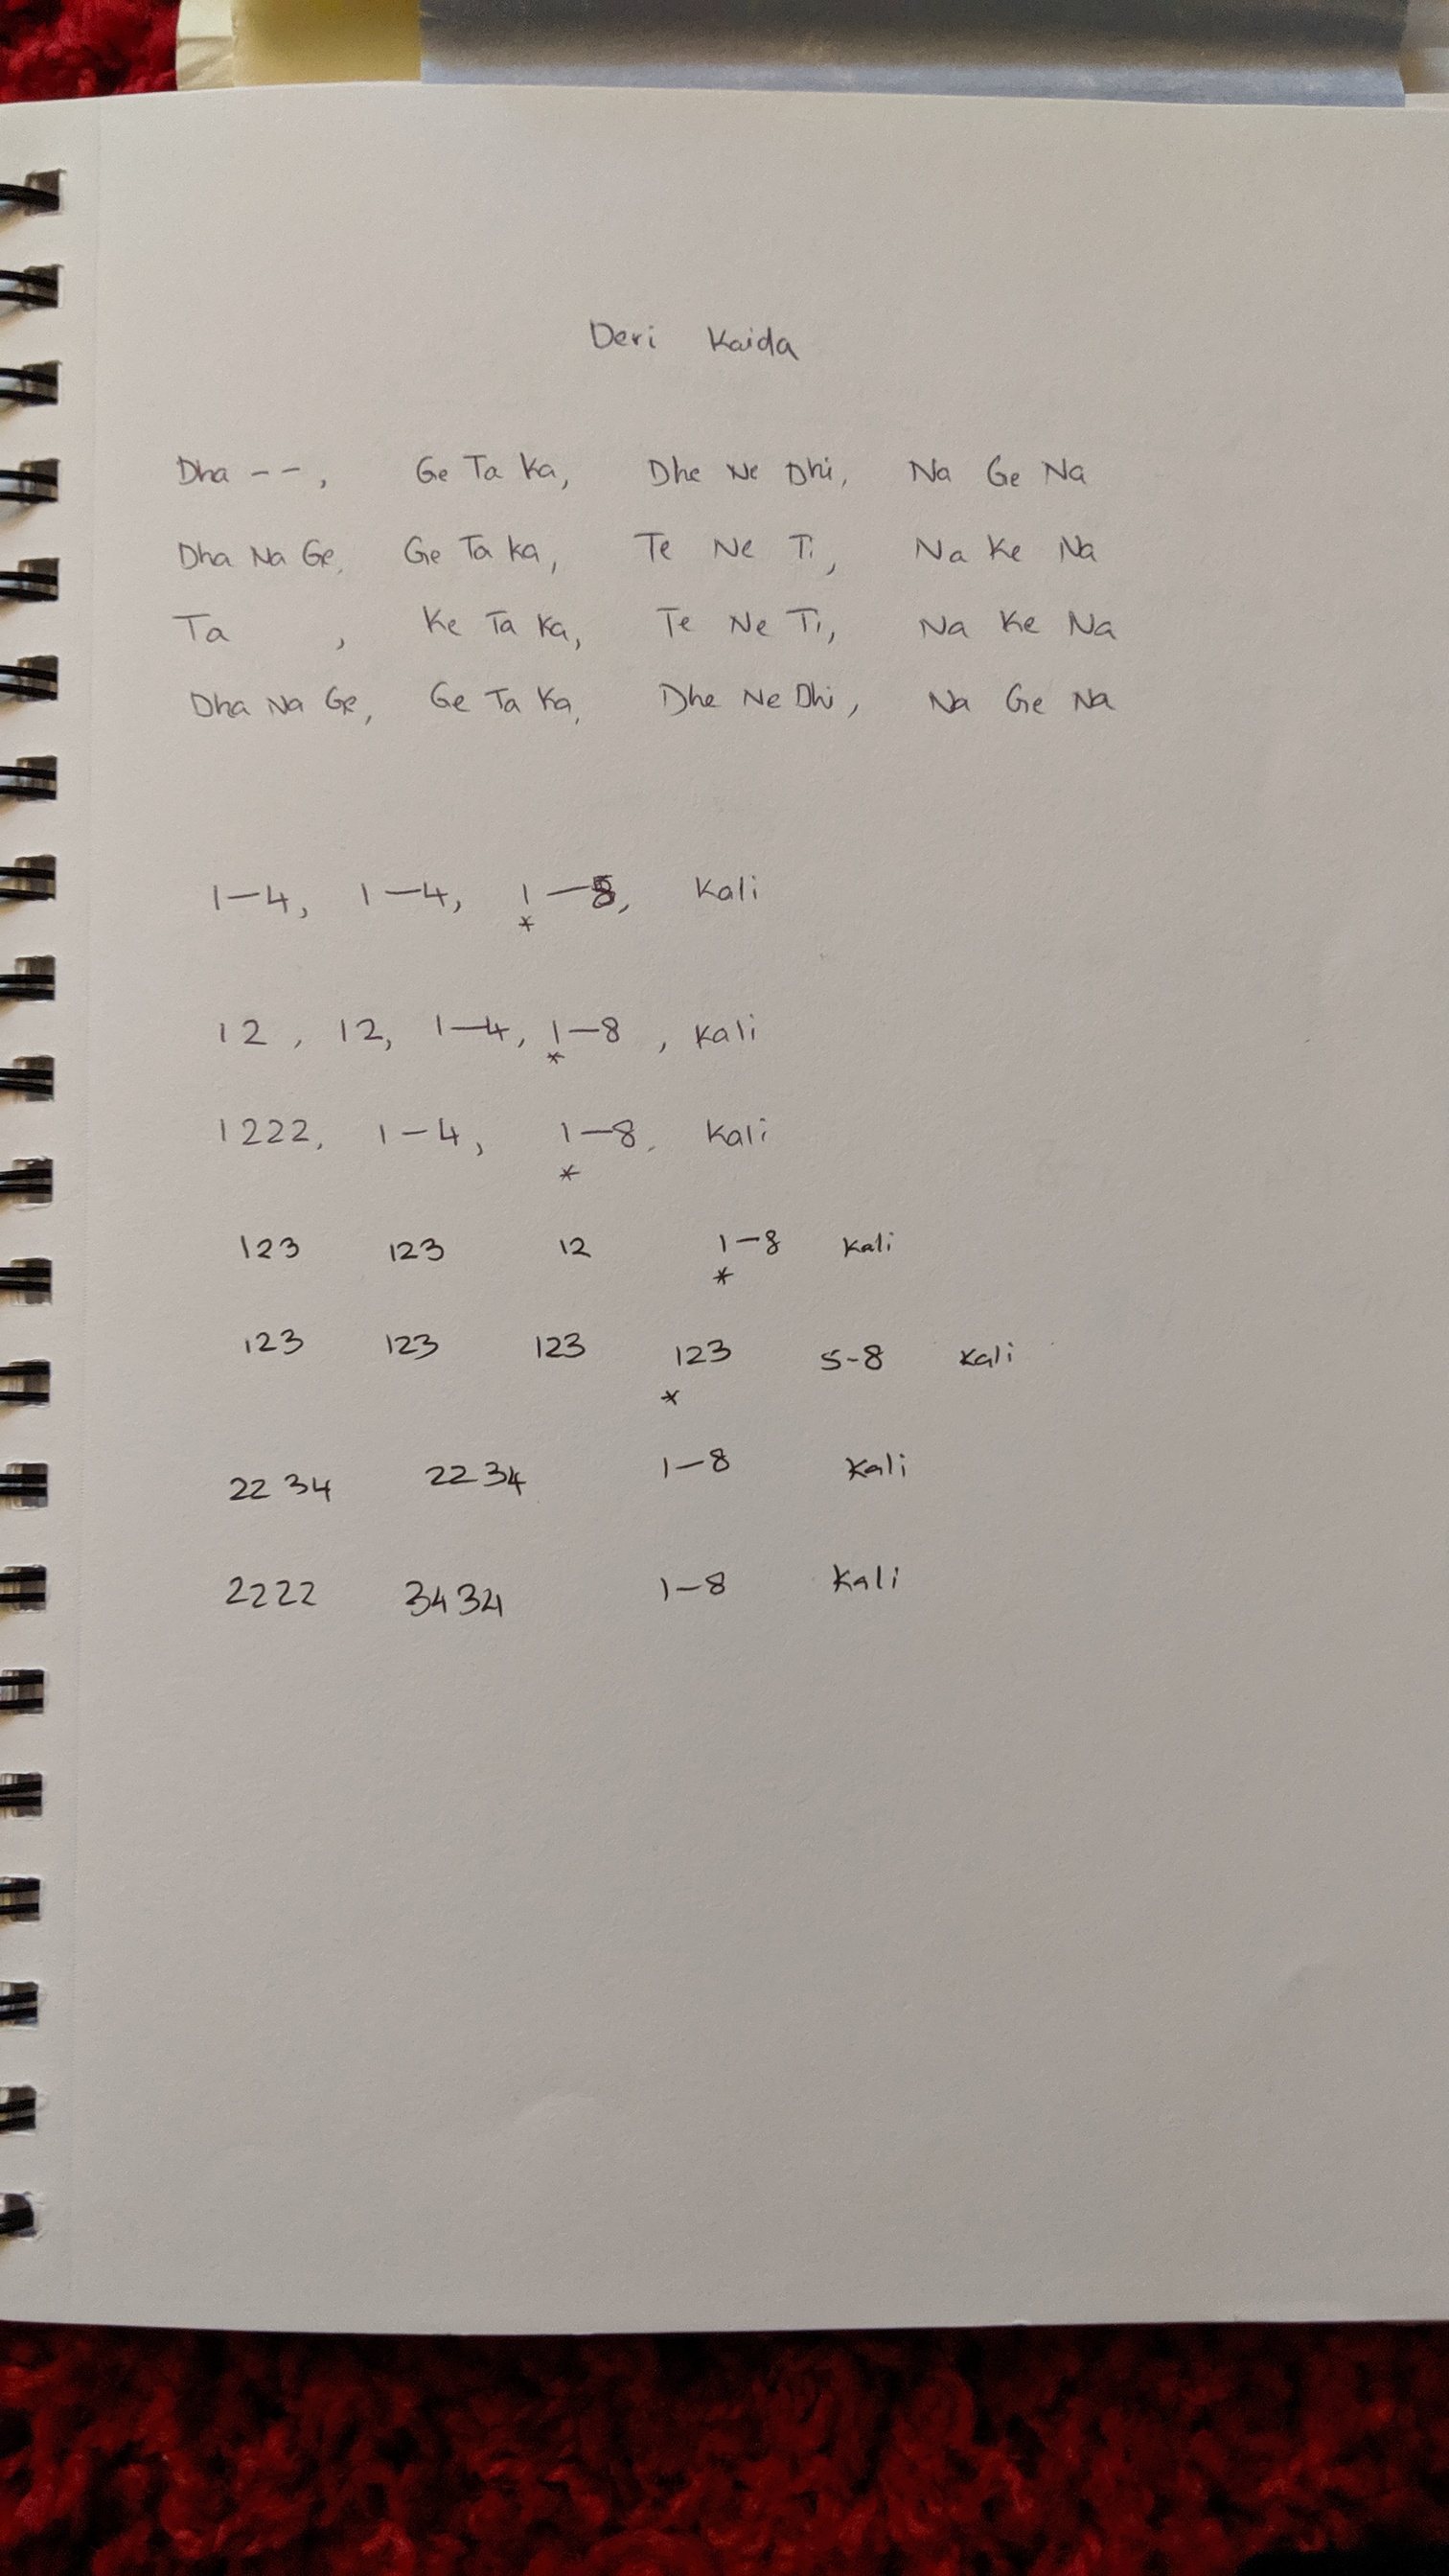 Deri Kaida
Dha - - , Ge Ta Ka, Dhe Ne Dhi, Na Ge Na
Dha Na Ge, Ge Ta Ka, Te Ne Ti, Na Ke Na
Ta , Ke Ta Ka, Te Ne Ti, Na Ke Na
Dha Na Ge, Ge Ta Ka, Dhe Ne Dhi, Na Ge Na
1-4, 1-4, 1-8, Kali
*
12, 12, 1-4, 1-8, Kali
*
1222, 1-4, 1-8, Kali
*
123 123 12 1-8 Kali
*
123 123 123 123 5-8 Kali
*
22 34 22 34 1-8 Kali
2222 3434 1-8 Kali